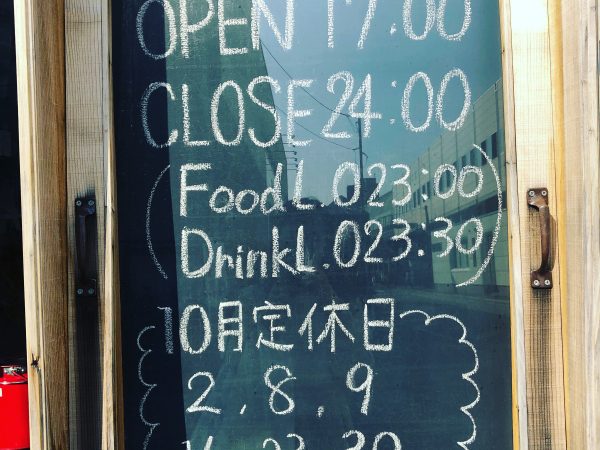 OPEN 17:00
CLOSE 24:00
(Food L.O 23:00
Drink L.O 23:30)
10月定休日
2.8.9